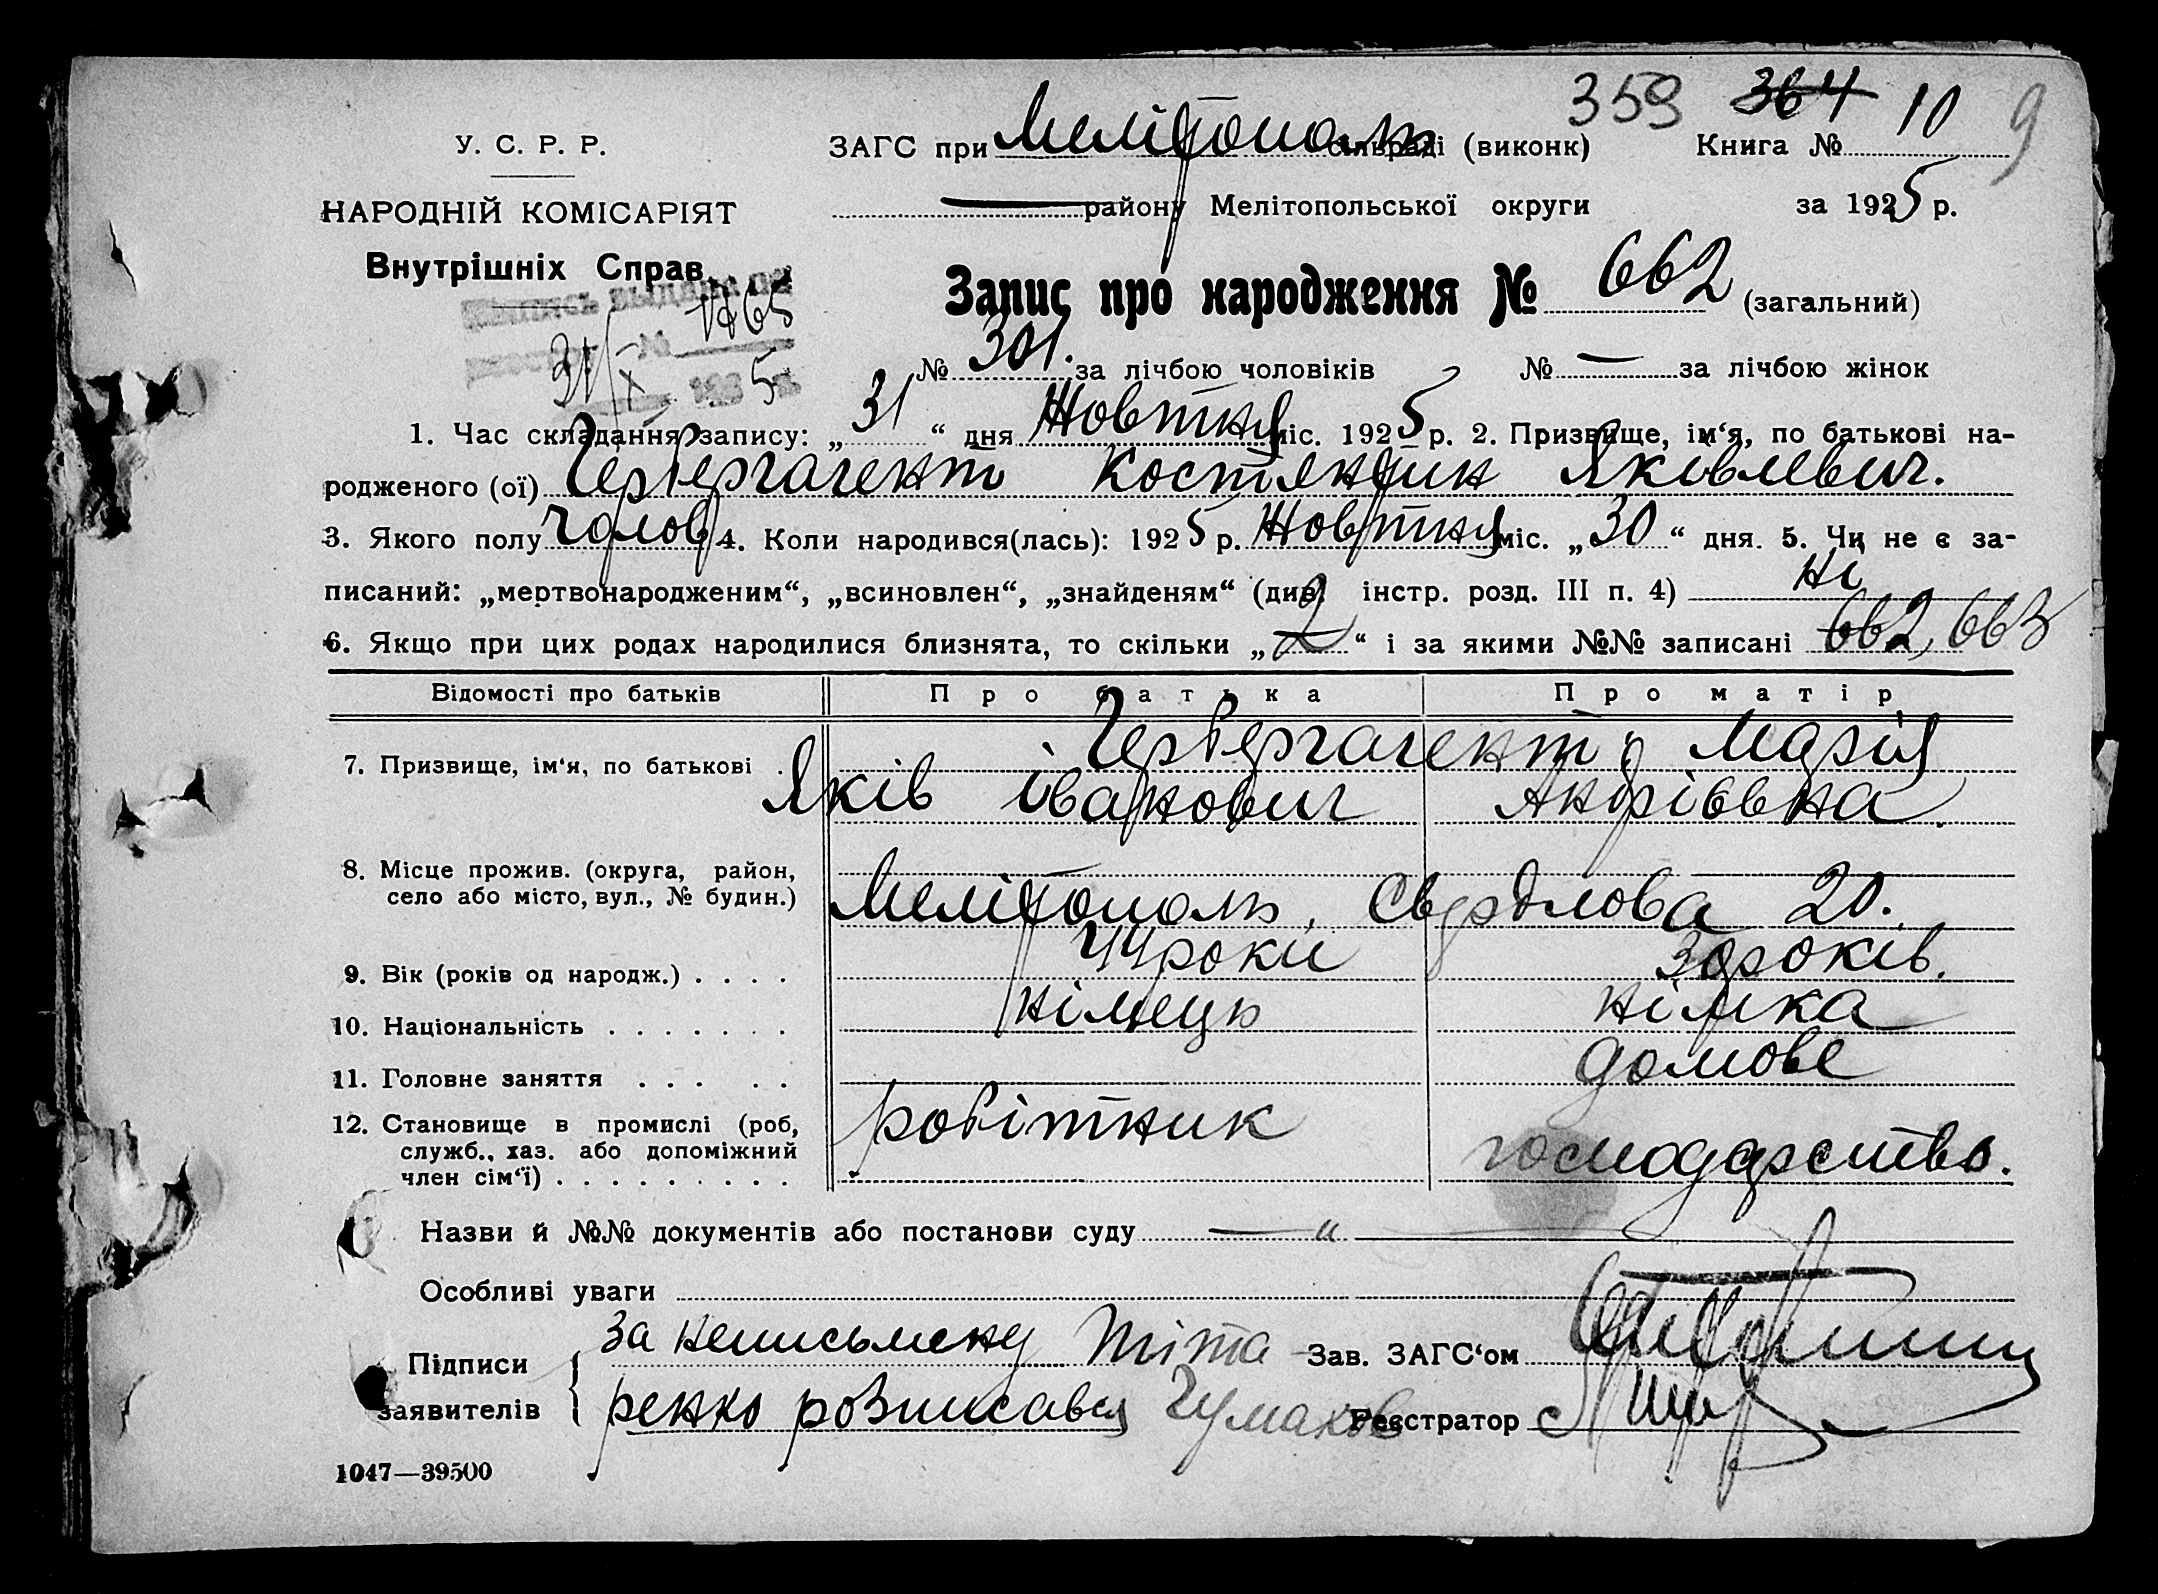 359 364 10 9
У. С. Р. Р. ЗАГС при Мелітополь сільраді (виконк) Книга №
НАРОДНІЙ КОМІСАРІЯТ району Мелітопольської округи за 1925 р.
Внутрішніх Справ.
Запис про народження № 662 (загальний)
31/X 5
№ 301. за лічбою чоловіків № — за лічбою жінок
1. Час складання запису: „31“ дня Жовтня міс. 1925 р. 2. Призвище, ім‘я, по батькові на-
родженого (ої) Гербергагент Костянтин Яківлевич.
3. Якого полу чолов 4. Коли народився(лась): 1925 р. Жовтня міс. „30“ дня. 5. Чи не є за-
писаний: „мертвонародженим“, „всиновлен“, „знайденям“ (див. інстр. розд. III п. 4) ні
6. Якщо при цих родах народилися близнята, то скільки „2“ і за якими №№ записані 662, 663
Відомості про батьків Про батька Про матір
7. Призвище, ім‘я, по батькові . Гербергагент Марія
Яків Іванович Андріввна.
8. Місце прожив. (округа, район,
село або місто, вул., № будин.) Мелітополь, Свердлова 20.
9. Вік (років од народж.) . . . . 44 роки 30 років.
10. Національність . . . . . . . німець німка
11. Головне заняття . . . . . домове
12. Становище в промислі (роб, робітник
служб., хаз. або допоміжний господарство.
член сім‘ї) . . . . . . . . .
Назви й №№ документів або постанови суду — „ —
Особливі уваги
Підписи За неписьмену Тіта Зав. ЗАГС‘ом
заявителів ренко розписався Чумаков Реєстратор
1047—39500